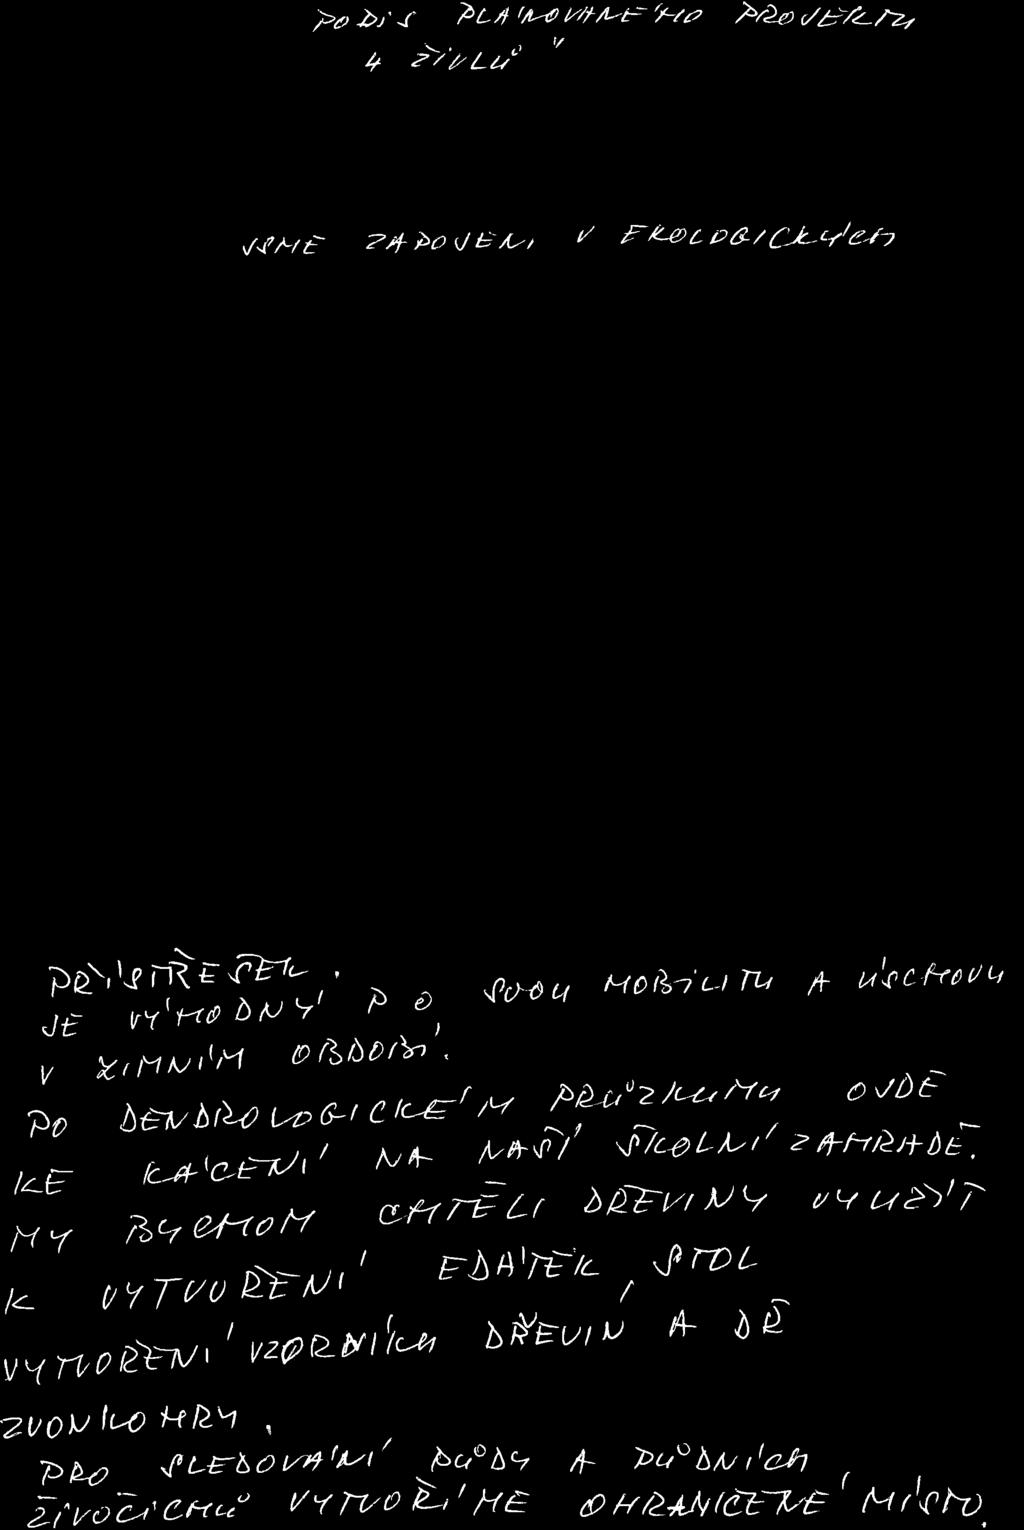 PODIS PLÁNOVANÉHO PROJEKTU
4 ŽIVLŮ"
JSME ZAPOJENI V EKOLOGICKÝCH
PŘÍSTŘEŠEK.
JE VÝHODNÝ P O SVOU MOBILITU A ÚSCHOVU
V ZIMNÍM OBDOBÍ.
PO DENDROLOGICKÉM PRŮZKUMU OJDE
KE KÁCENÍ NA NAŠÍ ŠKOLNÍ ZAHRADĚ.
MY BYCHOM CHTĚLI DŘEVINY VYUŽÍT
K VYTVOŘENÍ EDÁTEK, STOL
VYTVOŘENÍ VZORNÍKU DŘEVIN A DŘ
ZVONKOHRY.
PRO SLEDOVÁNÍ PŮDY A PŮDNÍCH
ŽIVOČICHŮ VYTVOŘÍME OHRANIČENÉ MÍSTO.